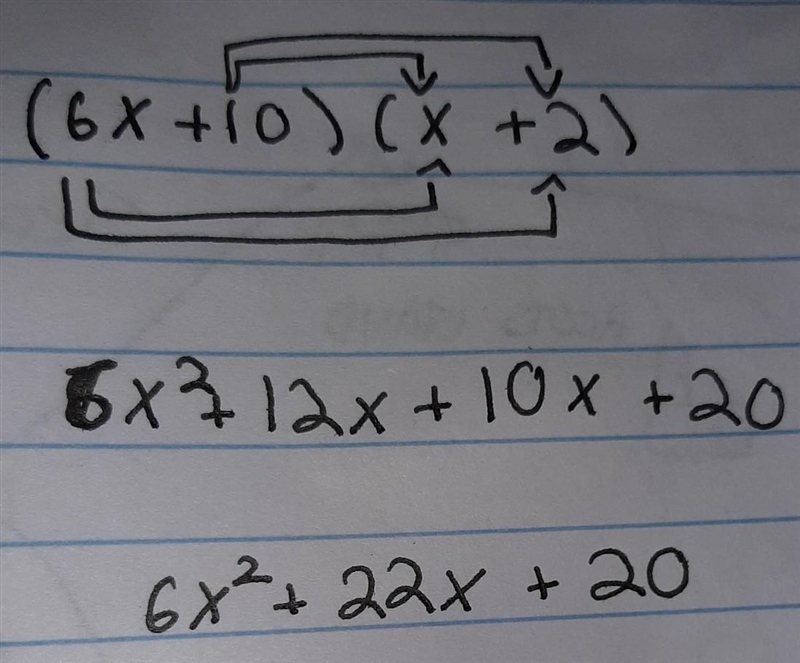 (6x +10) (x +2)
6x² + 12x + 10x + 20
6x² + 22x + 20